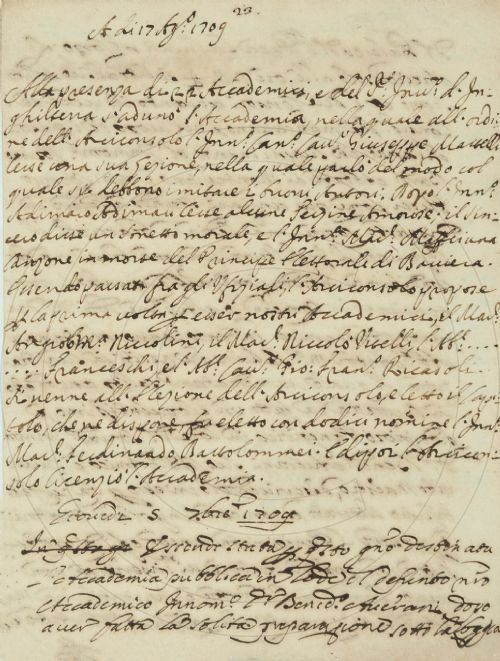 23.
A di 17 Ag.º 1709
Alla presenza di 22 Accademici, e del S.r Inv.º d. In-
ghilterra s'adunò l'Accademia, nella quale all'ordi-
ne dell'Arciconsolo l'Inn.º Can.º Cav.º Giuseppe Martelli
lesse una sua lezione, nella quale parlò del modo col
quale si debbono imitare i buoni Autori. Dopo l'Inn.º
Adimaro Adimari lesse alcune Terzine Amorose. il Sin-
cero disse un sonetto morale, e l'Inn.º Mar.º una
Canzone in morte del Principe Elettorale di Baviera.
Essendo passati fra gli Ufiziali l'Arciconsolo propose
p la prima volta p esser nostri Accademici, il Mar.º
Niccolini, il Mar.º Niccolò l'Ab.e ....
.... Franceschi, e l'Ab.e Cav.e Gio: Fran.º Ricasoli.
Si venne all'Elezione dell'Arciconsolo, e letto il Capi-
tolo, che ne dispone, fu eletto con dodici nomine l'Inn.º
Mar.º Ferdinando Bartolommei. E di poi l'Arcicon-
solo licenziò l'Accademia.
Giovedì 5 7bre 1709
Essendo stata p q.sto gno destinata
l'Accademia pubblica in lode del defunto nro
Accademico Innom.º D.r Bened.º Averani, dopo
aver fatta la solita preparazione sotto la loggia